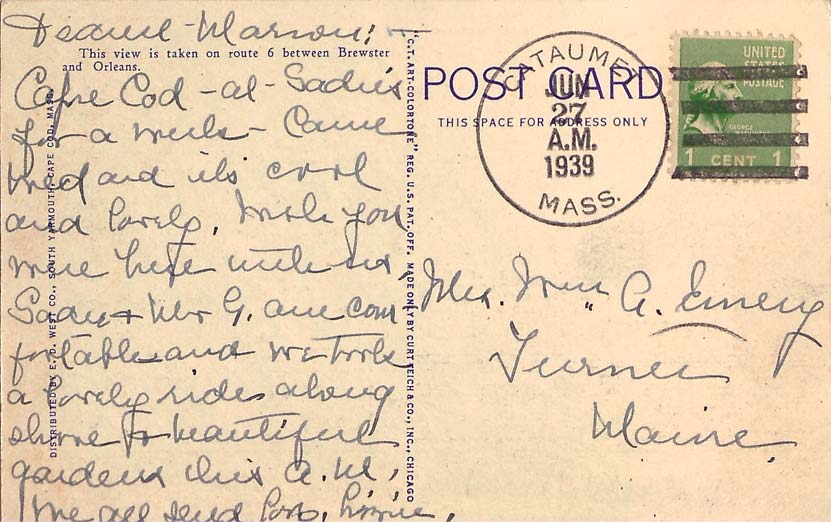 Dearest Marion:-
This view is taken on route 6 between Brewster
and Orleans.
Cape Cod - at - Sadie's
for a week - Came
Wed and it's cool
and lovely. Wish you
were here with us,
Sadie + Mr G. are com
fortable and we took
a lovely ride along
shore to beautiful
gardens this A.M.
We all send love, Lizzie.
DISTRIBUTED BY E. D. WEST CO., SOUTH YARMOUTH, CAPE COD, MASS.
"C.T. ART-COLORTONE" REG. U.S. PAT. OFF. MADE ONLY BY CURT TEICH & CO., INC., CHICAGO
POST CARD
THIS SPACE FOR ADDRESS ONLY
CATAUMET
JUN
27
A.M.
1939
MASS.
UNITED
STATES
POSTAGE
GEORGE
WASHINGTON
1 CENT 1
Mrs. Wm A. Emery
Turner
Maine.